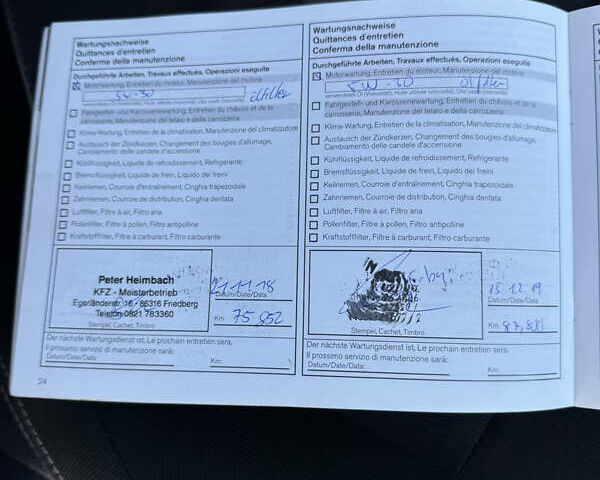 Wartungsnachweise
Quittances d'entretien
Conferma della manutenzione
Durchgeführte Arbeiten, Travaux effectués, Operazioni eseguite
Motorwartung, Entretien du moteur, Manutenzione del motore
5W-30 Ölfilter
verwendetes Öl (Viskosität), Huile utilisée (Viscosité), Olio usato (viscosità)
Fahrgestell- und Karosseriewartung, Entretien du châssis et de la
carrosserie, Manutenzione del telaio e della carrozzeria
Klima-Wartung, Entretien de la climatisation, Manutenzione del climatizzatore
Austausch der Zündkerzen, Changement des bougies d'allumage,
Cambiamento delle candele d'accensione
Kühlflüssigkeit, Liquide de refroidissement, Refrigerante
Bremsflüssigkeit, Liquide de frein, Liquido dei freini
Keilriemen, Courroie d'entraînement, Cinghia trapezoidale
Zahnriemen, Courroie de distribution, Cinghia dentata
Luftfilter, Filtre à air, Filtro aria
Pollenfilter, Filtre à pollen, Filtro antipolline
Kraftstofffilter, Filtre à carburant, Filtro carburante
Peter Heimbach
KFZ - Meisterbetrieb
Egerländerstr. 16 - 86316 Friedberg
Telefon 0821 783360
Stempel, Cachet, Timbro
11 18
Datum/Date/Data
Km: 75 852
Der nächste Wartungsdienst ist, Le prochain entretien sera,
Il prossimo servizio di manutenzione sarà:
Datum/Date/Data: Km:
24
Wartungsnachweise
Quittances d'entretien
Conferma della manutenzione
Durchgeführte Arbeiten, Travaux effectués, Operazioni eseguite
Motorwartung, Entretien du moteur, Manutenzione del motore
5W-30 Ölfilter
verwendetes Öl (Viskosität), Huile utilisée (Viscosité), Olio usato (viscosità)
Fahrgestell- und Karosseriewartung, Entretien du châssis et de la
carrosserie, Manutenzione del telaio e della carrozzeria
Klima-Wartung, Entretien de la climatisation, Manutenzione del climatizzatore
Austausch der Zündkerzen, Changement des bougies d'allumage,
Cambiamento delle candele d'accensione
Kühlflüssigkeit, Liquide de refroidissement, Refrigerante
Bremsflüssigkeit, Liquide de frein, Liquido dei freini
Keilriemen, Courroie d'entraînement, Cinghia trapezoidale
Zahnriemen, Courroie de distribution, Cinghia dentata
Luftfilter, Filtre à air, Filtro aria
Pollenfilter, Filtre à pollen, Filtro antipolline
Kraftstofffilter, Filtre à carburant, Filtro carburante
Stempel, Cachet, Timbro
12 19
Datum/Date/Data
Km:
Der nächste Wartungsdienst ist, Le prochain entretien sera,
Il prossimo servizio di manutenzione sarà:
Datum/Date/Data: Km: